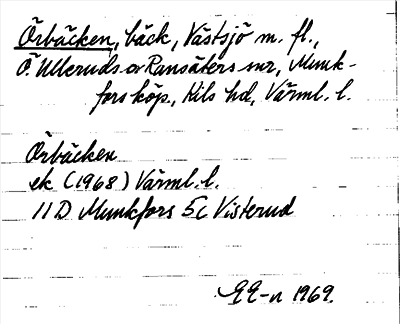 Örbäcken, bäck, Västsjö m. fl.,
Ö. Ulleruds o Ransäters snr, Munk-
fors köp., Kils hd, Värml. l.
Örbäcken
ek (1968) Värml. l.
11 D Munkfors 5c Visterud
1969.